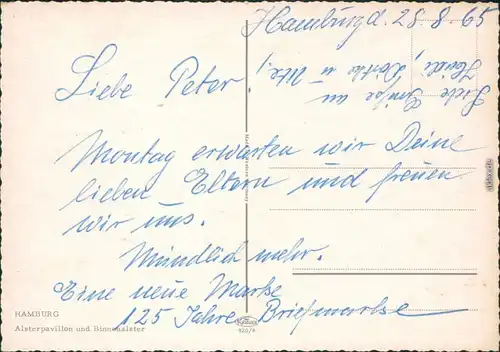 Hamburg d. 28.8.65
Liebe Grüße an
Heidi, Dörte u Ute,!
Liebe Peter!
Montag erwarten wir Deine
lieben Eltern und freuen
wir uns.
Mündlich mehr.
Eine neue Marke
125 Jahre Briefmarke
HAMBURG
Alsterpavillon und Binnenalster